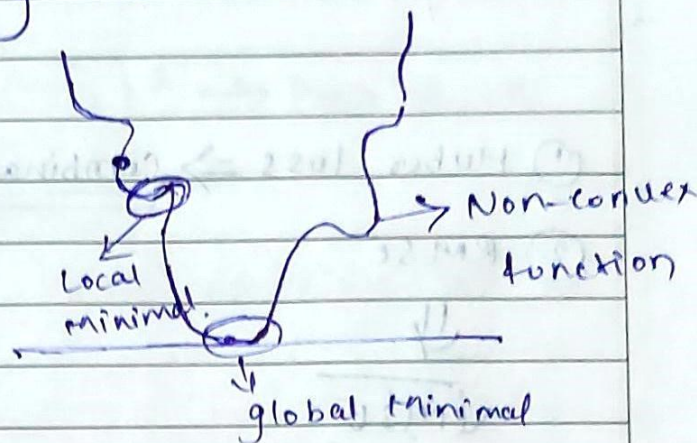 Non-convex
function
Local
minimal.
global minimal